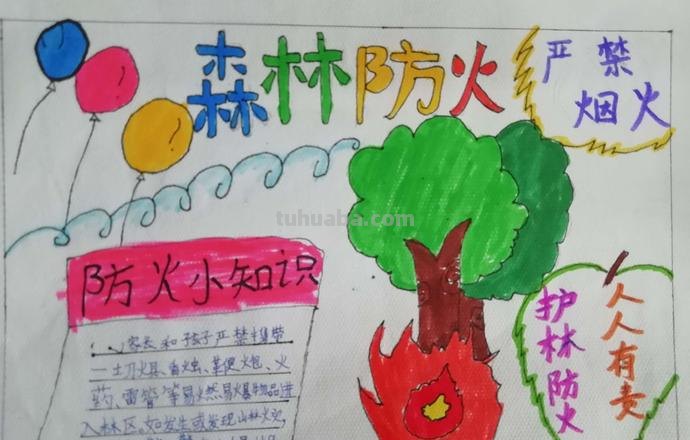 森林防火
严禁
烟火
tuhuaba.com
防火小知识
家长和孩子严禁携带
一切火具、香烛、鞭炮、火
药、雷管等易燃易爆物品进
入林区,如发生或发现山林火
护林防火
人人有责